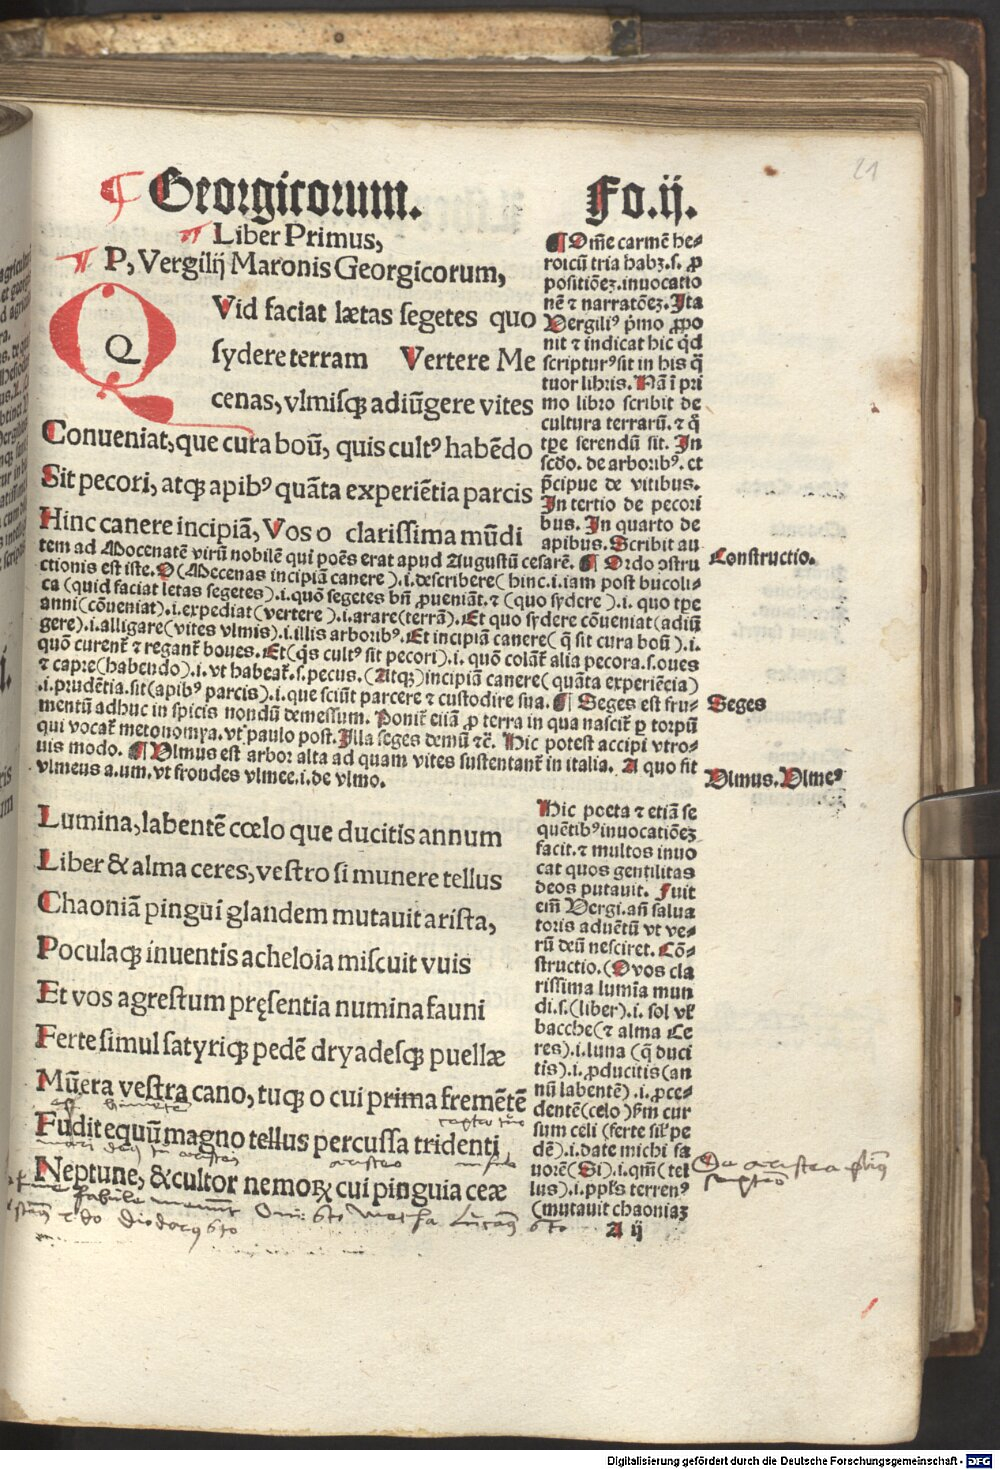 21
¶ Georgicorum. Fo.ij.
Liber Primus,
P, Vergilij Maronis Georgicorum,
Q Vid faciat lætas segetes quo
sydere terram Vertere Me
cenas, vlmisqꝫ adiũgere vites
Conueniat, que cura boũ, quis cultꝰ habẽdo
Sit pecori, atqꝫ apibꝰ quãta experiẽtia parcis
Hinc canere incipiã, Vos o clarissima mũdi
¶ Om̃e carmẽ he-
roicũ tria habꝫ.s. ꝓ
positiõeꝫ. inuocatio
nẽ ⁊ narratõeꝫ. Ita
Vergiliꝰ p̃mo ꝓpo
nit ⁊ indicat hic qd̃
scripturꝰ sit in his q̃
tuor libris. Nã ĩ pri
mo libro scribit de
cultura terrarũ. ⁊ q̃
tꝑe serendũ sit. In
scd̃o. de arboribꝰ. et
p̃cipue de vitibus.
In tertio de pecori
bus. In quarto de
apibus. Scribit au
tem ad Mocenatẽ virũ nobilẽ qui poẽs erat apud Augustũ cesarẽ. ¶ Ordo ↄstru
Constructio.
ctionis est iste. O (Mecenas incipiã canere).i.describere (hinc.i.iam post bucoli-
ca (quid faciat letas segetes).i.quõ segetes bñ ꝓueniãt. ⁊ (quo sydere).i. quo tꝑe
anni (cõueniat).i.expediat (vertere).i.arare (terrã). Et quo sydere cõueniat (adiũ
gere).i.alligare (vites vlmis).i.illis arboribꝰ. Et incipiã canere (q̃ sit cura boũ).i.
quõ curent᷑ ⁊ regant᷑ boues. Et (q̃s cultꝰ sit pecori).i. quõ colãt᷑ alia pecora.s.oues
⁊ capre (habendo).i. vt habeat᷑.s. pecus. (Atqꝫ) incipiã canere (quãta experiẽcia)
.i. prudẽtia.sit (apibꝰ parcis).i. que sciũt parcere ⁊ custodire sua. ¶ Seges est fru-
Seges
mentũ adhuc in spicis nondũ demessum. Ponit᷑ etiã ꝓ terra in qua nascit᷑ ꝑ torpũ
qui vocat᷑ metonomya. vt᷑ paulo post. Illa seges demũ ⁊c̃. Hic potest accipi vtro-
uis modo. ¶ Vlmus est arbor alta ad quam vites sustentant᷑ in italia. A quo fit
Vlmus. Vlmeꝰ
vlmeus a.um. vt frondes vlmee.i. de vlmo.
Lumina, labentẽ cœlo que ducitis annum
Liber & alma ceres, vestro si munere tellus
Chaoniã pingui glandem mutauit arista,
Poculaqꝫ inuentis acheloia miscuit vuis
Et vos agrestum pręsentia numina fauni
Ferte simul satyriqꝫ pedẽ dryadesqꝫ puellæ
Mũera vestra cano, tuqꝫ o cui prima fremẽtẽ
Fudit equũ magno tellus percussa tridenti
Neptune, & cultor nemoꝝ cui pinguia ceæ
Hic poeta ⁊ etiã se
quẽtibꝰ inuocatiõeꝫ
facit. ⁊ multos inuo
cat quos gentilitas
deos putauit. Fuit
em̃ Vergi. añ salua
toris aduẽtũ vt ve-
rũ deũ nesciret. Cõ-
structio. (O vos cla
rissima lumĩa mun
di.s.(liber).i. sol vl᷑
bacche (⁊ alma Ce
res).i.luna (q̃ duci
tis).i.ꝓducitis (an
nũ labentẽ).i.ꝓce-
dentẽ (celo) s̃m cur
sum celi (ferte sil᷑ pe
dẽ).i.date michi fa
uorẽ (Si).i.qm̃ (tel
lus).i.ppl᷑s terrenꝰ
(mutauit chaoniaꝫ
A ij
Digitalisierung gefördert durch die Deutsche Forschungsgemeinschaft - DFG